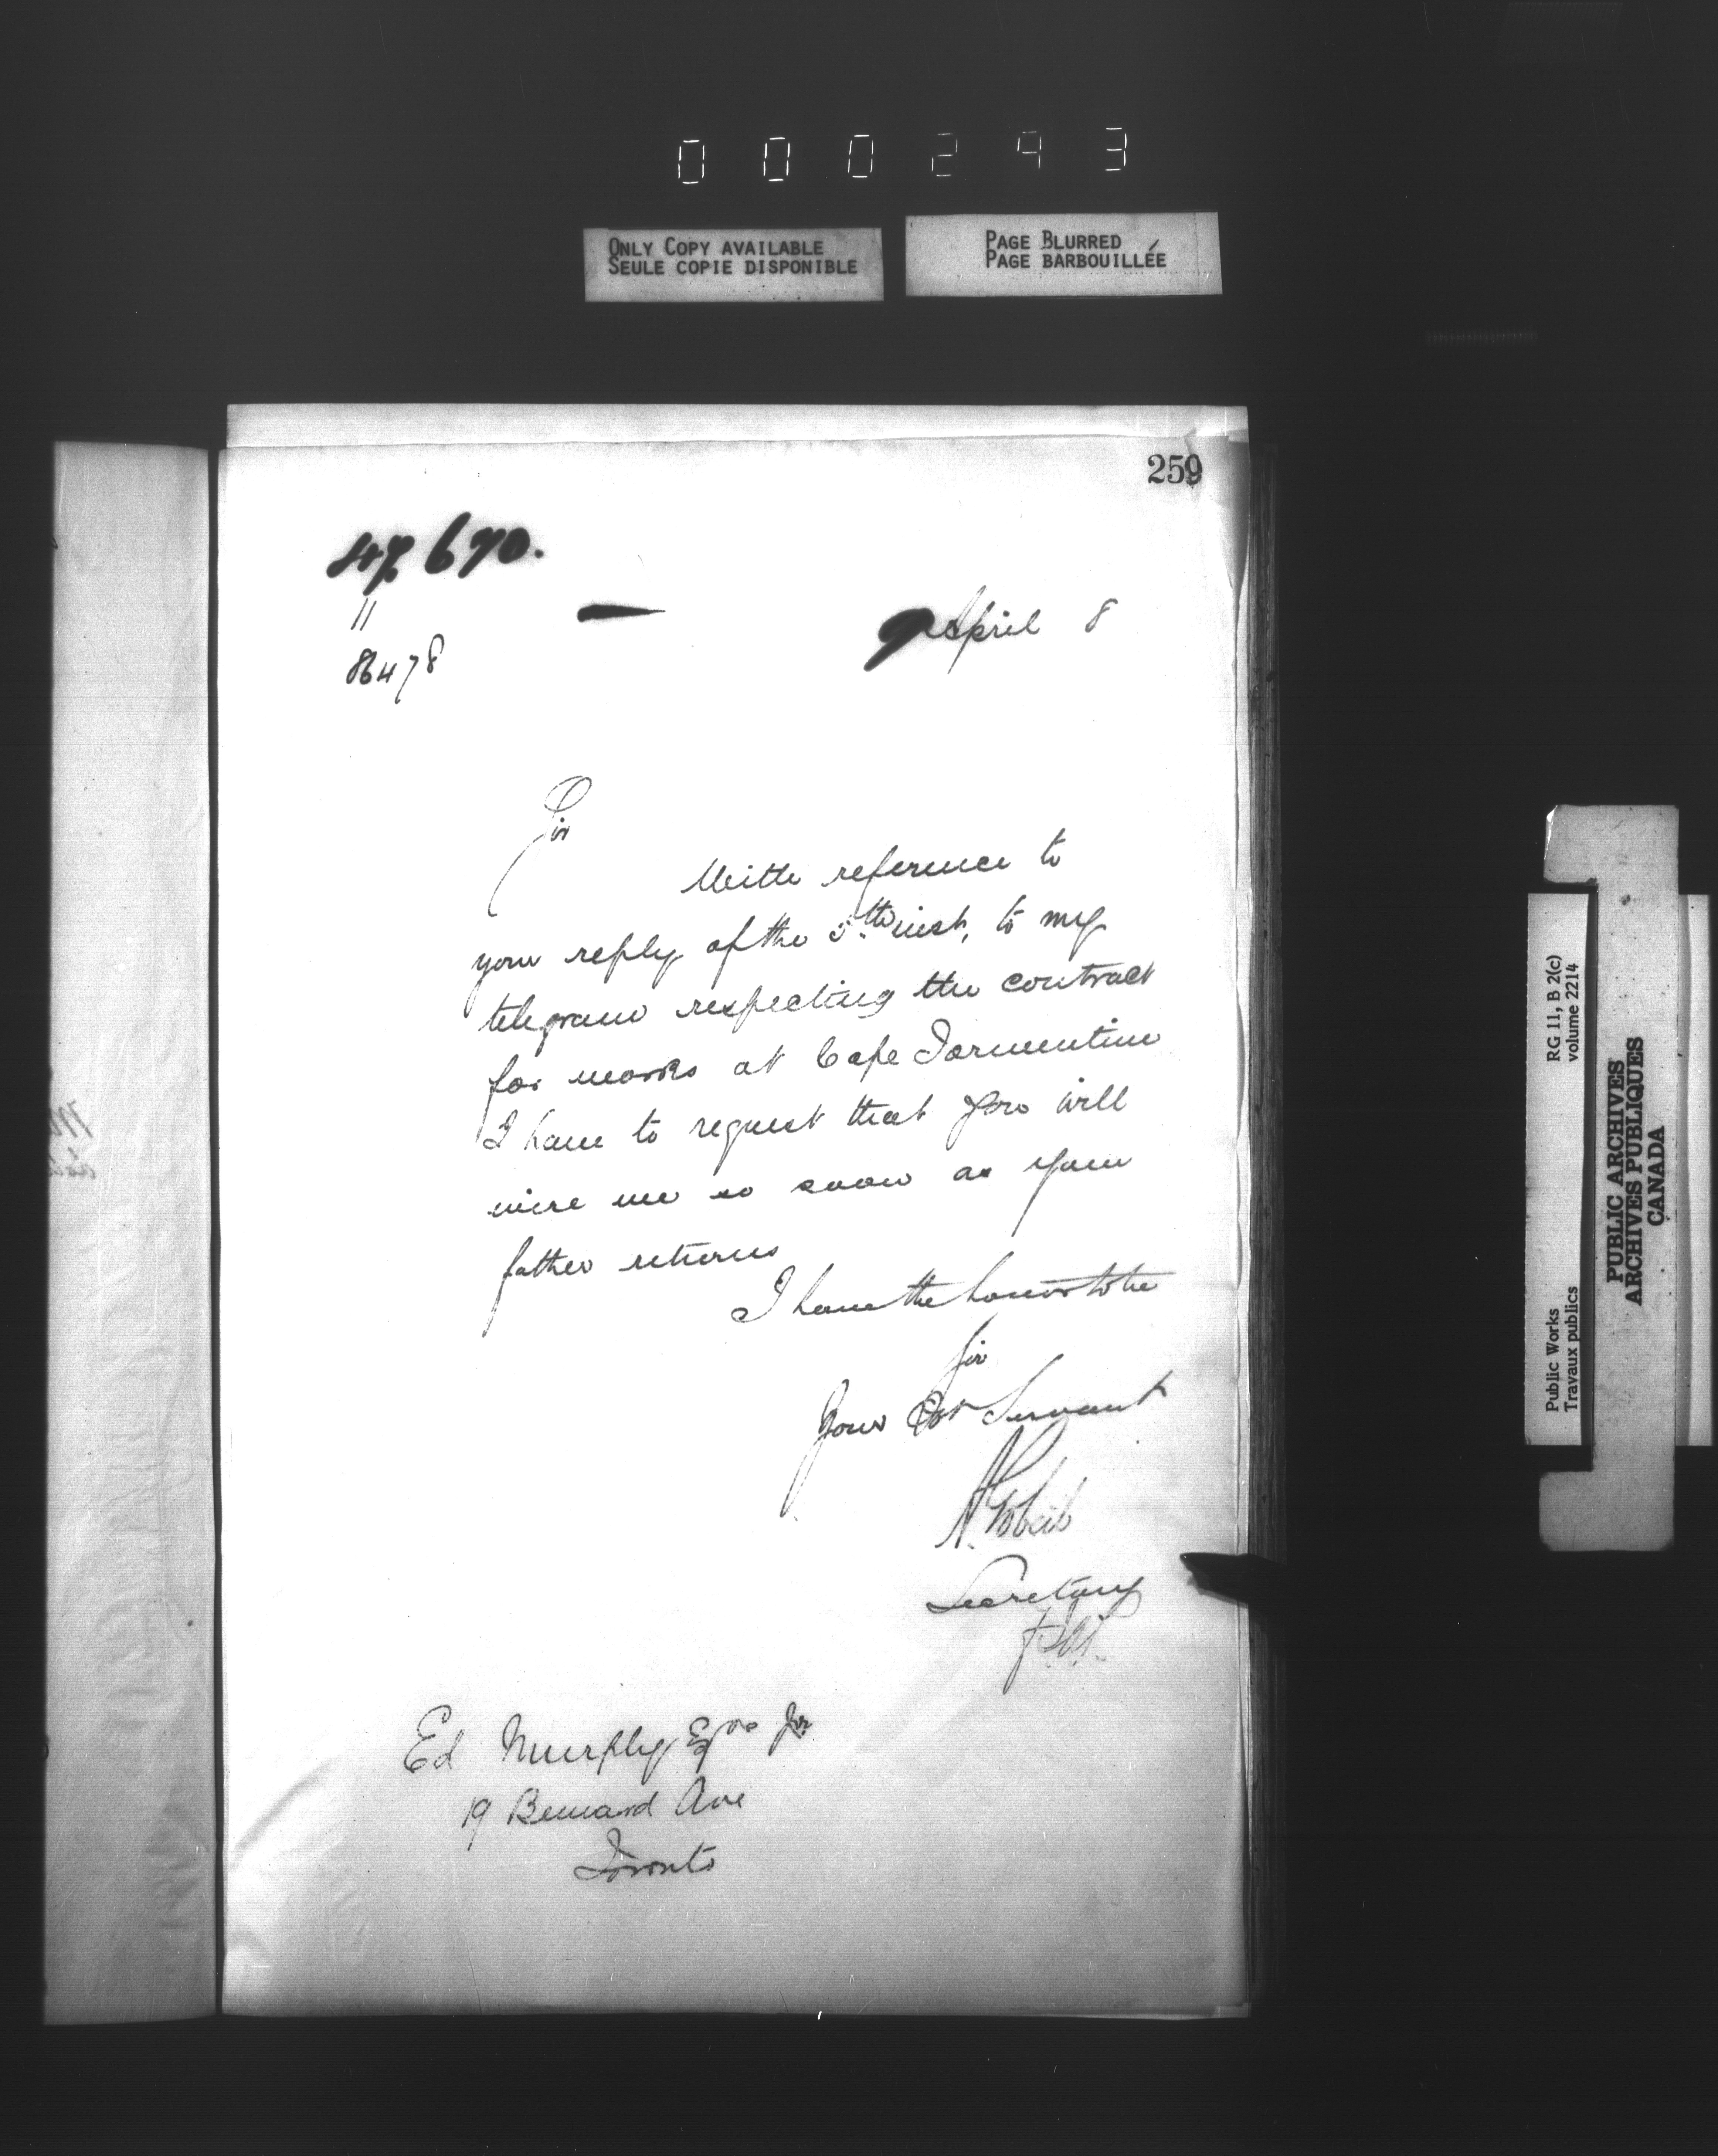 000243
ONLY COPY AVAILABLE
SEULE COPIE DISPONIBLE
PAGE BLURRED
PAGE BARBOUILLÉE
259
47670.
11
86478
April 8
Sir
With reference to
your reply of the 5th inst, to my
telegram respecting the contract
for works at Cape Tormentine
I have to request that you will
wire me so soon as your
father returns
I have the honor to be
Sir
Your Obt Servant
A Gobeil
Secretary
Ed Murphy Esqre Jr
19 Bernard Ave
Toronto
RG 11, B 2(c)
volume 2214
Public Works
Travaux publics
PUBLIC ARCHIVES
ARCHIVES PUBLIQUES
CANADA